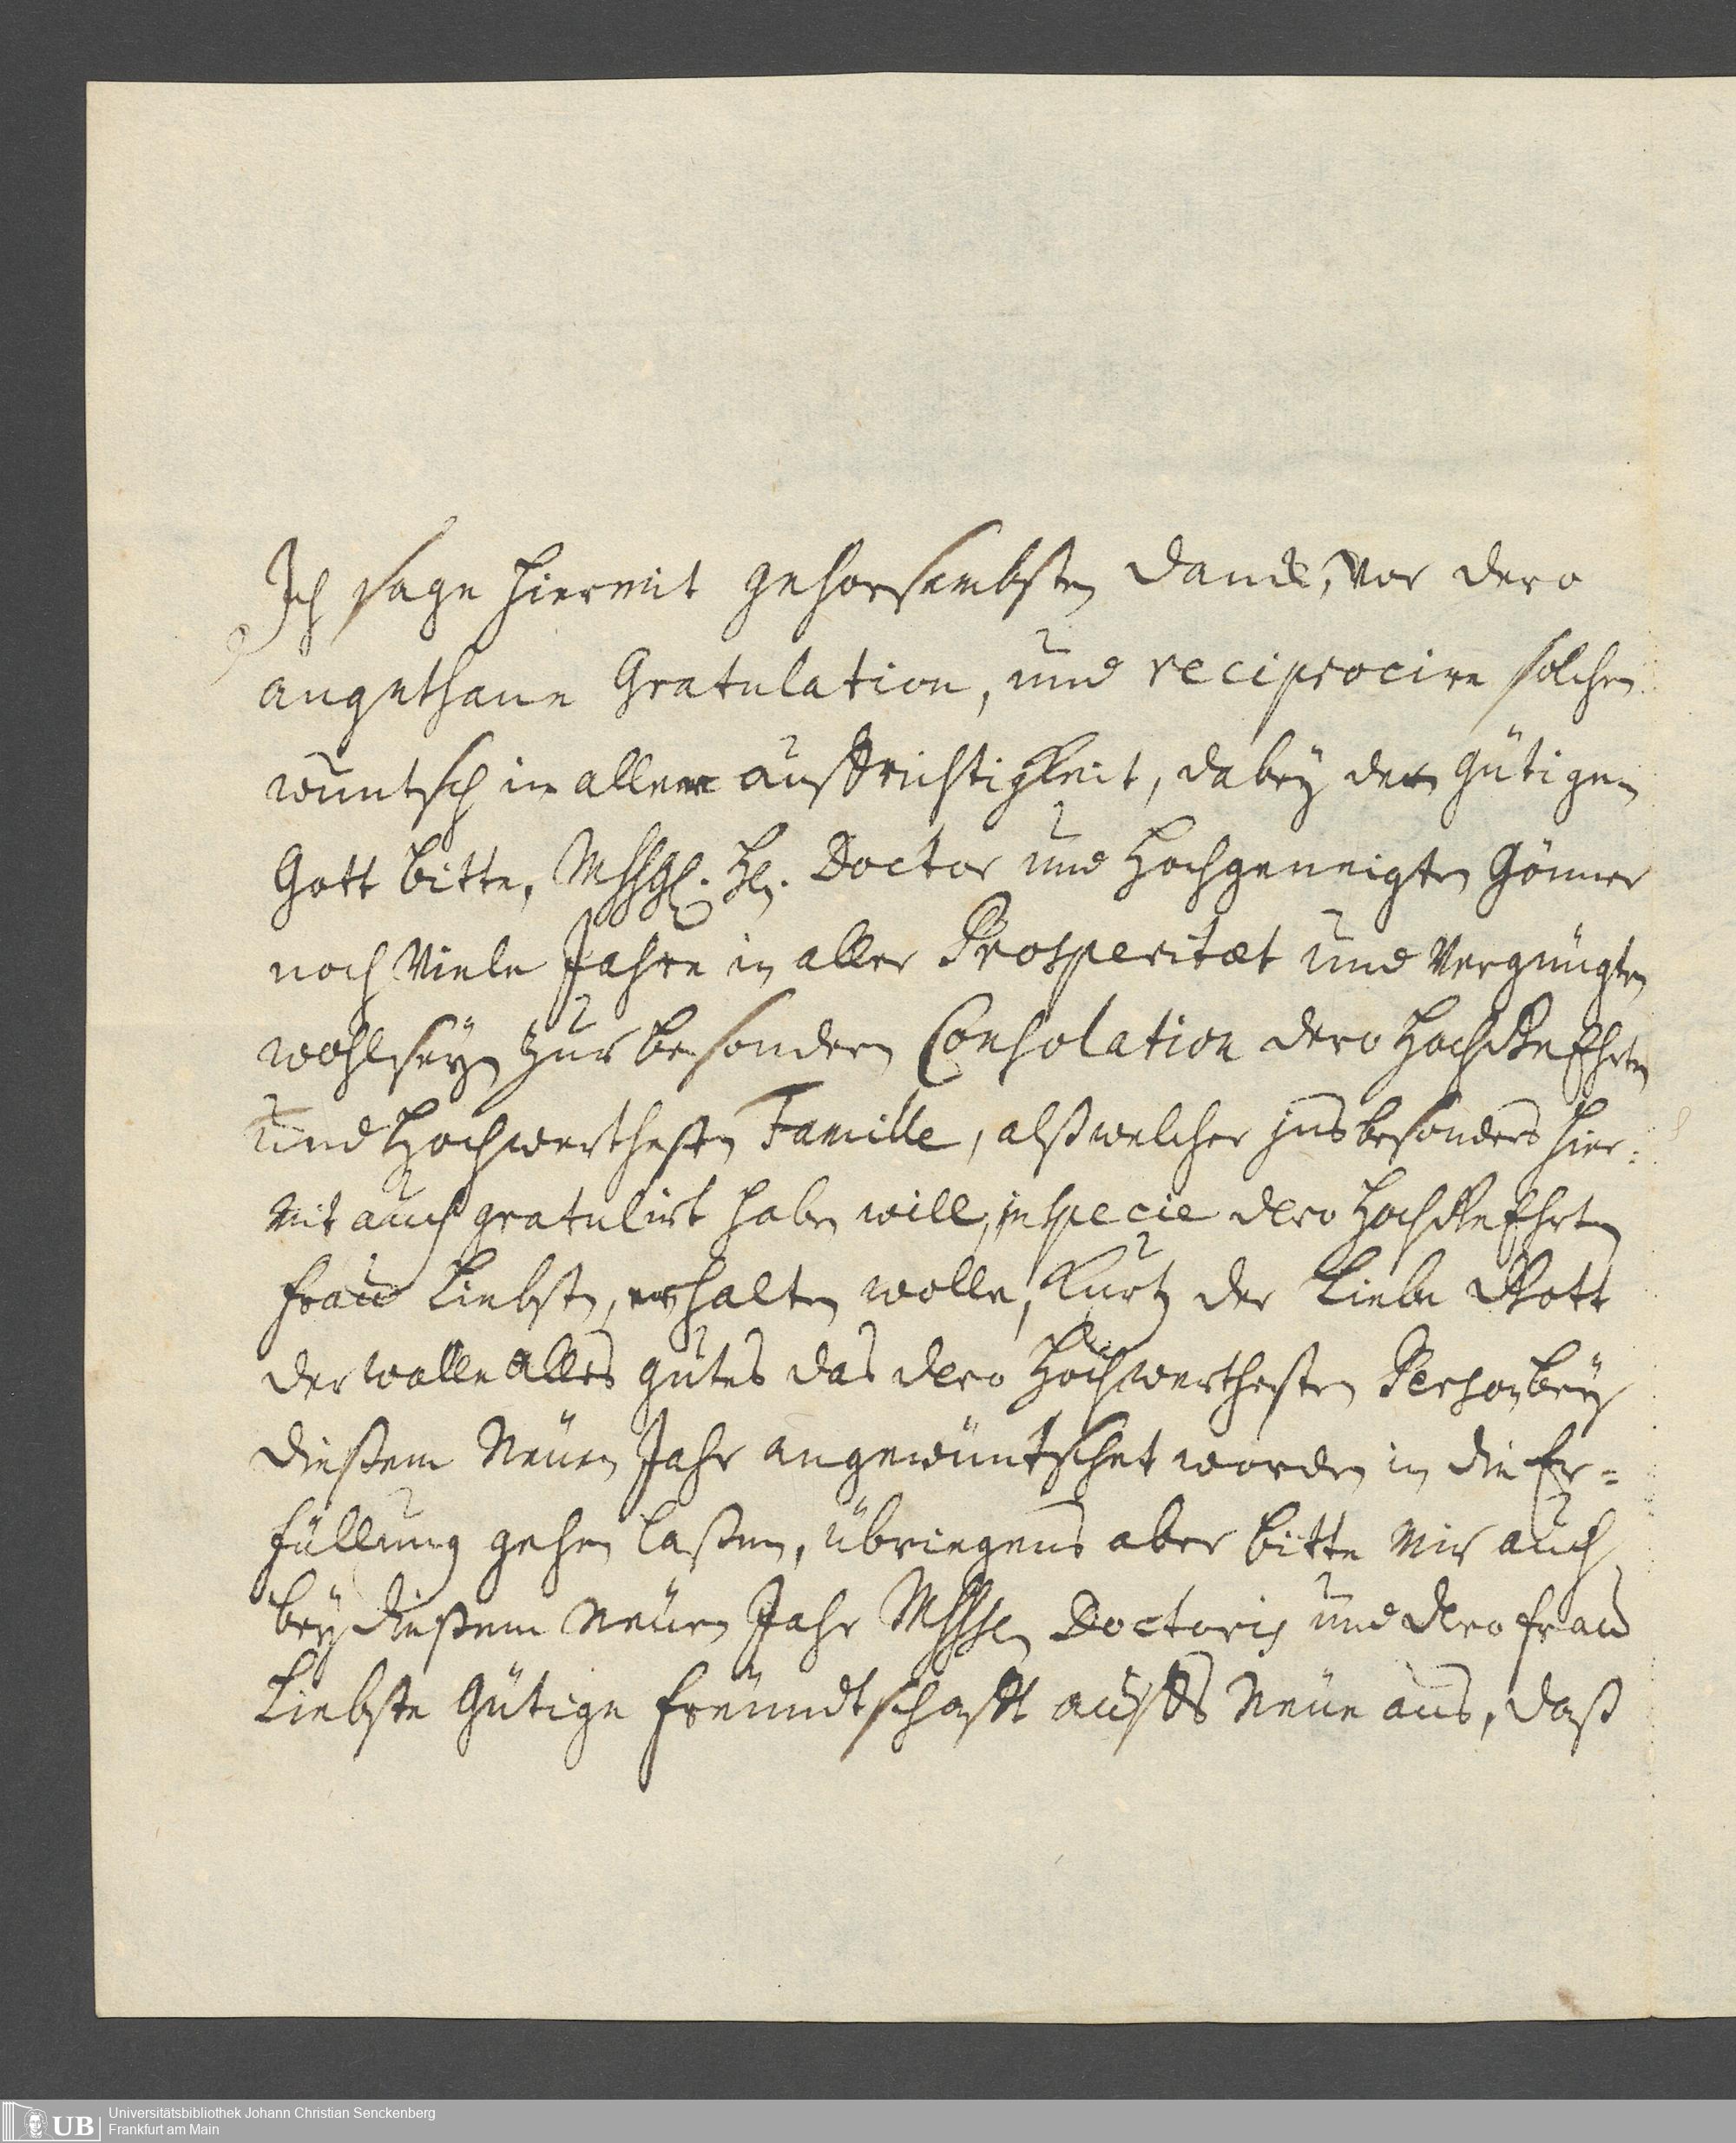 Ich sage hiermit gehorsambsten danck, vor dero
angethane Gratulation, und reciprocire solchen
wuntsch in aller auffrichtigkeit, dabey den gütigen
Gott bitte, Hn. Doctor und Hochgeneigten Gönner
noch Viele Jahre in aller Prosperitæt und Vergnügten
wohlseyn zur besondern Consolation dero HochGeEhrten
und Hochwerthesten Famille, alß welcher insbesonders hier=
mit auch gratulirt haben will, in specie dero HochGeEhrten
Frau Liebsten, erhalten wolle, Kurtz der Liebe Gott
der wolle alles gutes das dero Hochwerthesten Person bey
dießem Neuen Jahr angewüntschet worden in die Er=
füllung gehen laßen, übriegens aber bitte Mir auch
bey dießem Neuen Jahr Doctoris und dero Frau
Liebste Gütige Freundtschafft auffs Neue aus, daß
Universitätsbibliothek Johann Christian Senckenberg
UB Frankfurt am Main